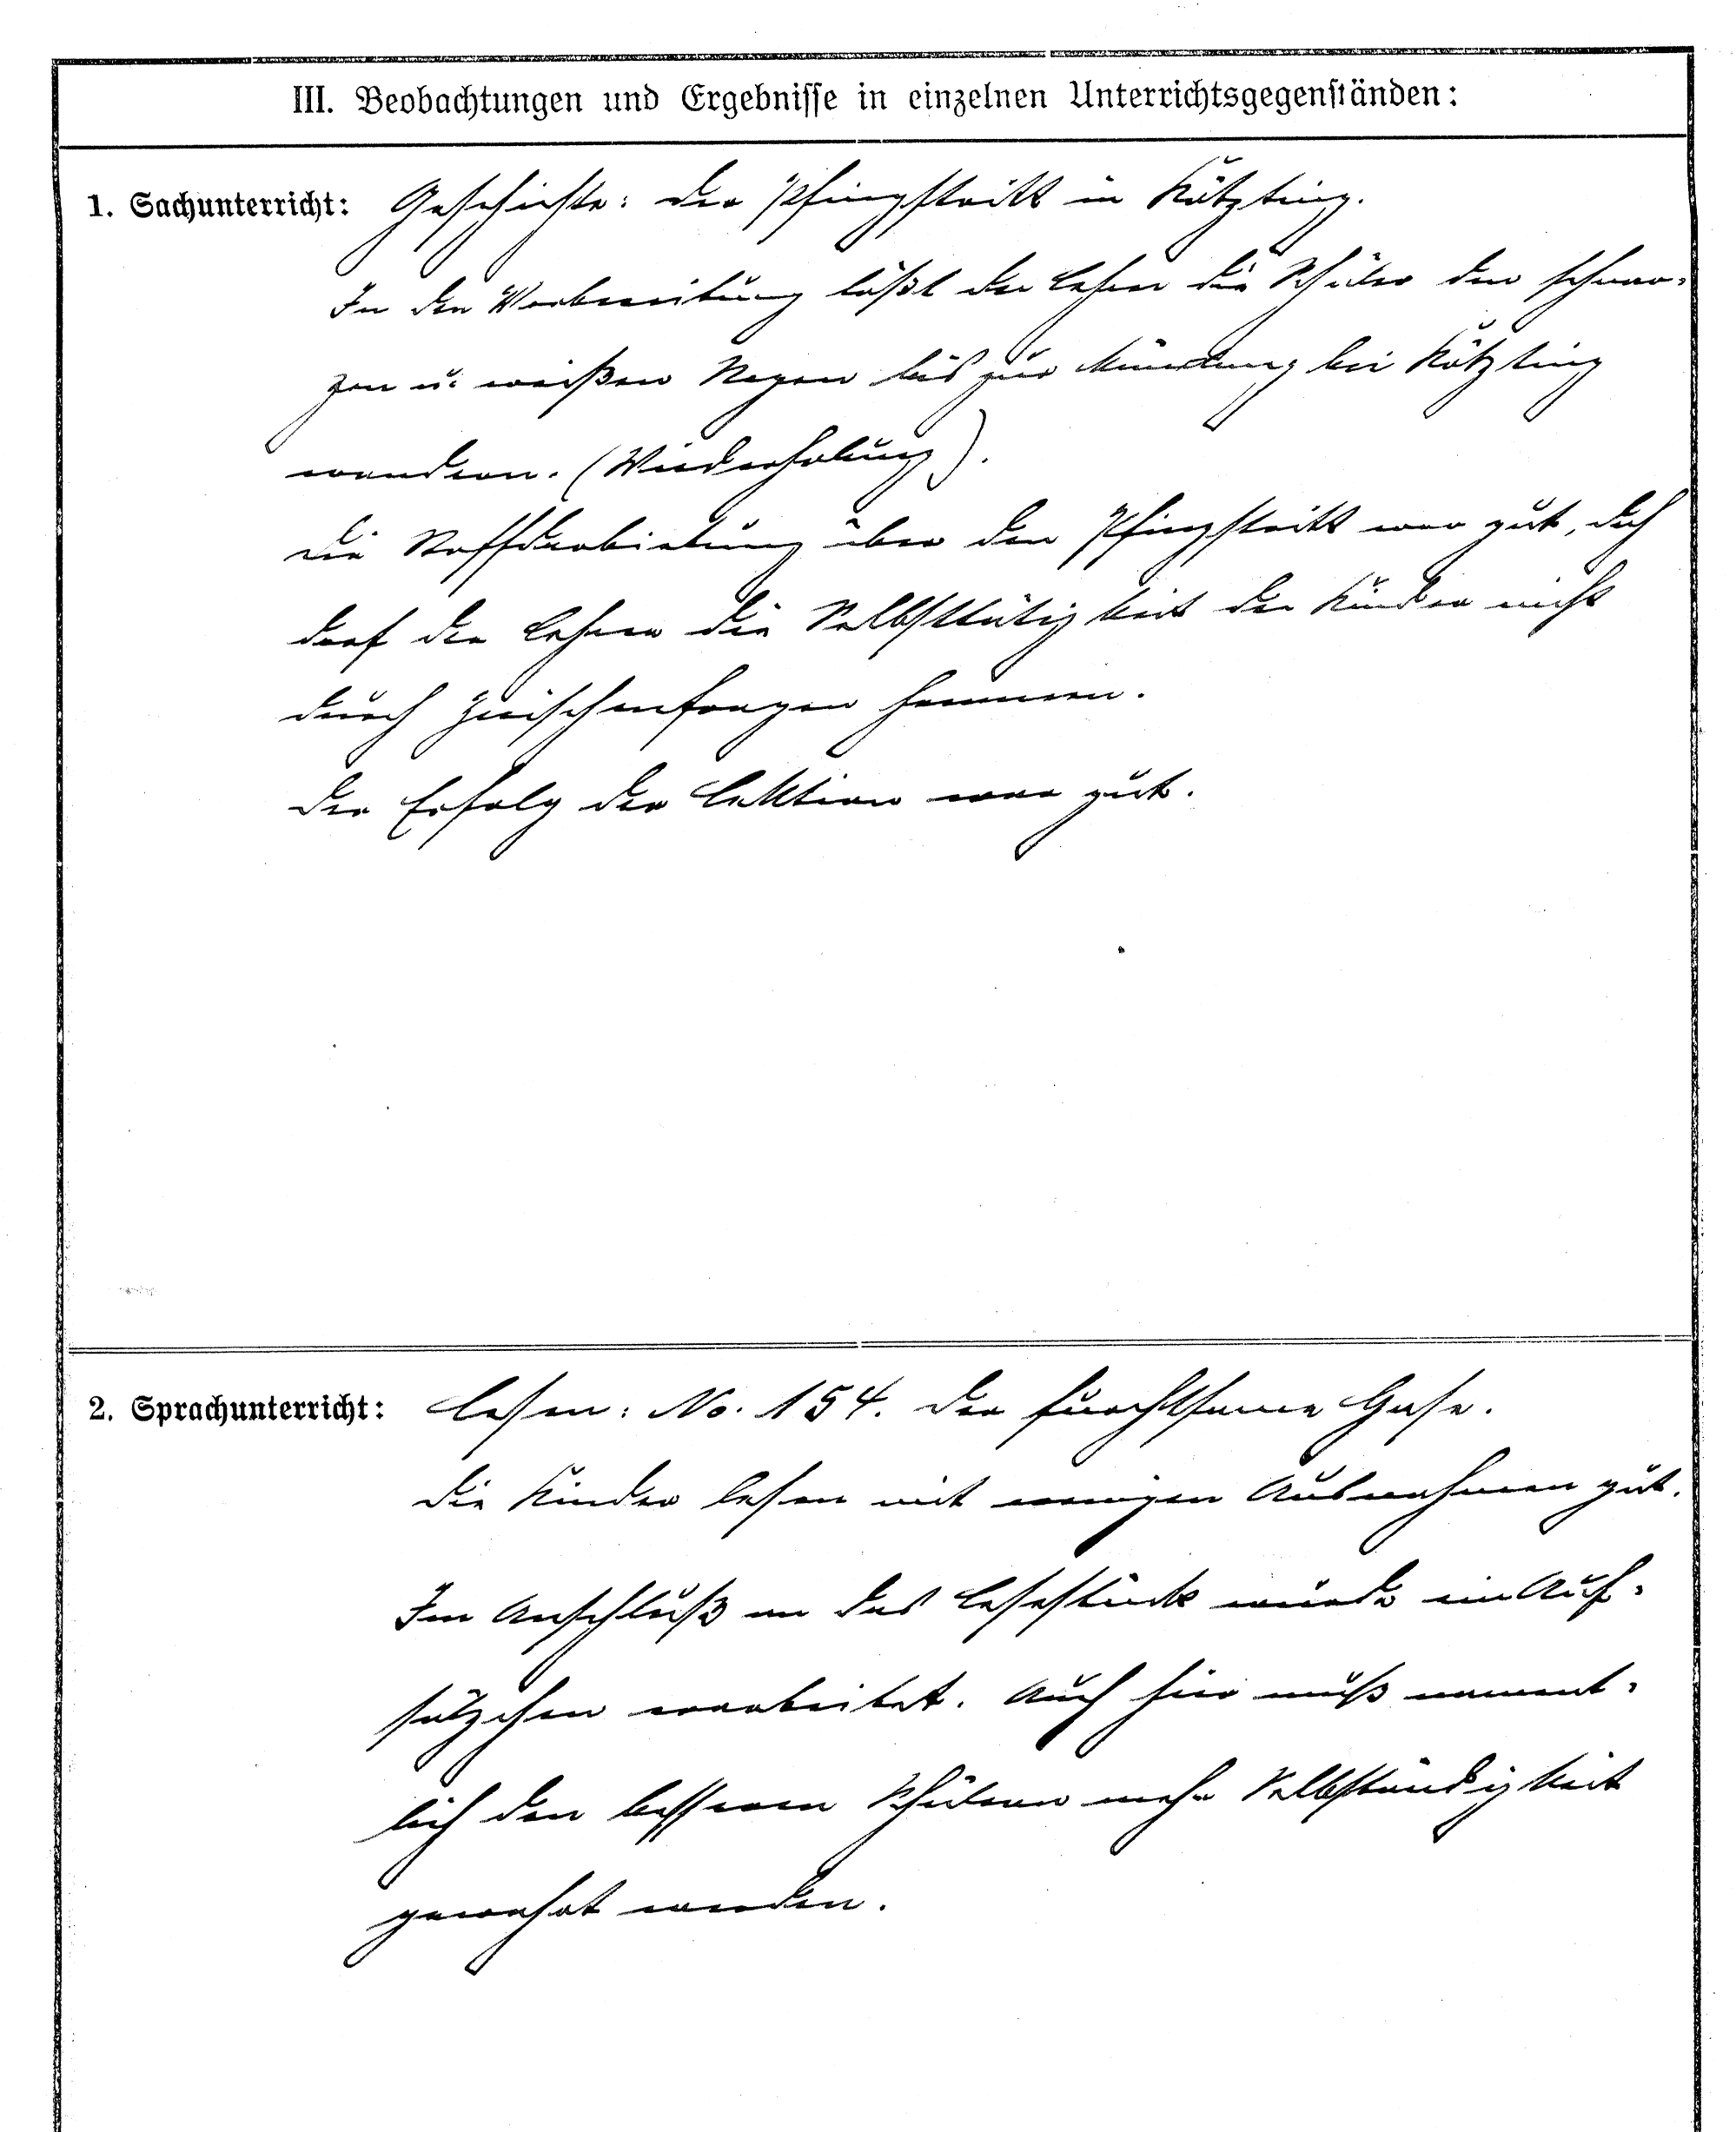 III. Beobachtungen und Ergebnisse in einzelnen Unterrichtsgegenständen:
1. Sachunterricht: Geschichte: Der Pfingstritt in Kötzting.
In der Vorbereitung läßt der Lehrer die Schüler den schwar-
zen u. weißen Regen bis zur Mündung bei Kötzting
wandern. (Wiederholung).
Die Stoffdarbietung über den Pfingstritt war gut, doch
darf der Lehrer die Selbsttätigkeit der Kinder nicht
durch Zwischenfragen hemmen.
Der Erfolg der Lektion war gut.
2. Sprachunterricht: Lesen: No. 154. Der furchtsame Hase.
Die Kinder lesen mit wenigen Ausnahmen gut.
Im Anschluß an das Lesestück wurde ein Auf-
sätzchen erarbeitet. Auch hier muß nament-
lich den besseren Schülern mehr Selbständigkeit
gewahrt werden.